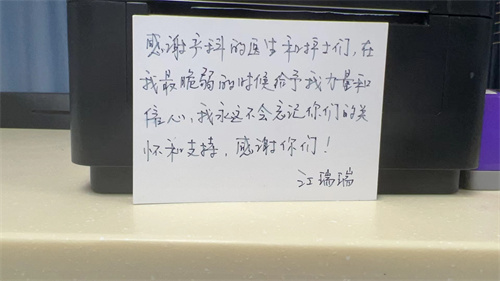 感谢予科的医生和护士们,在
我最脆弱的时候给予我力量和
信心,我永远不会忘记你们的关
怀和支持,感谢你们!
江瑞瑞